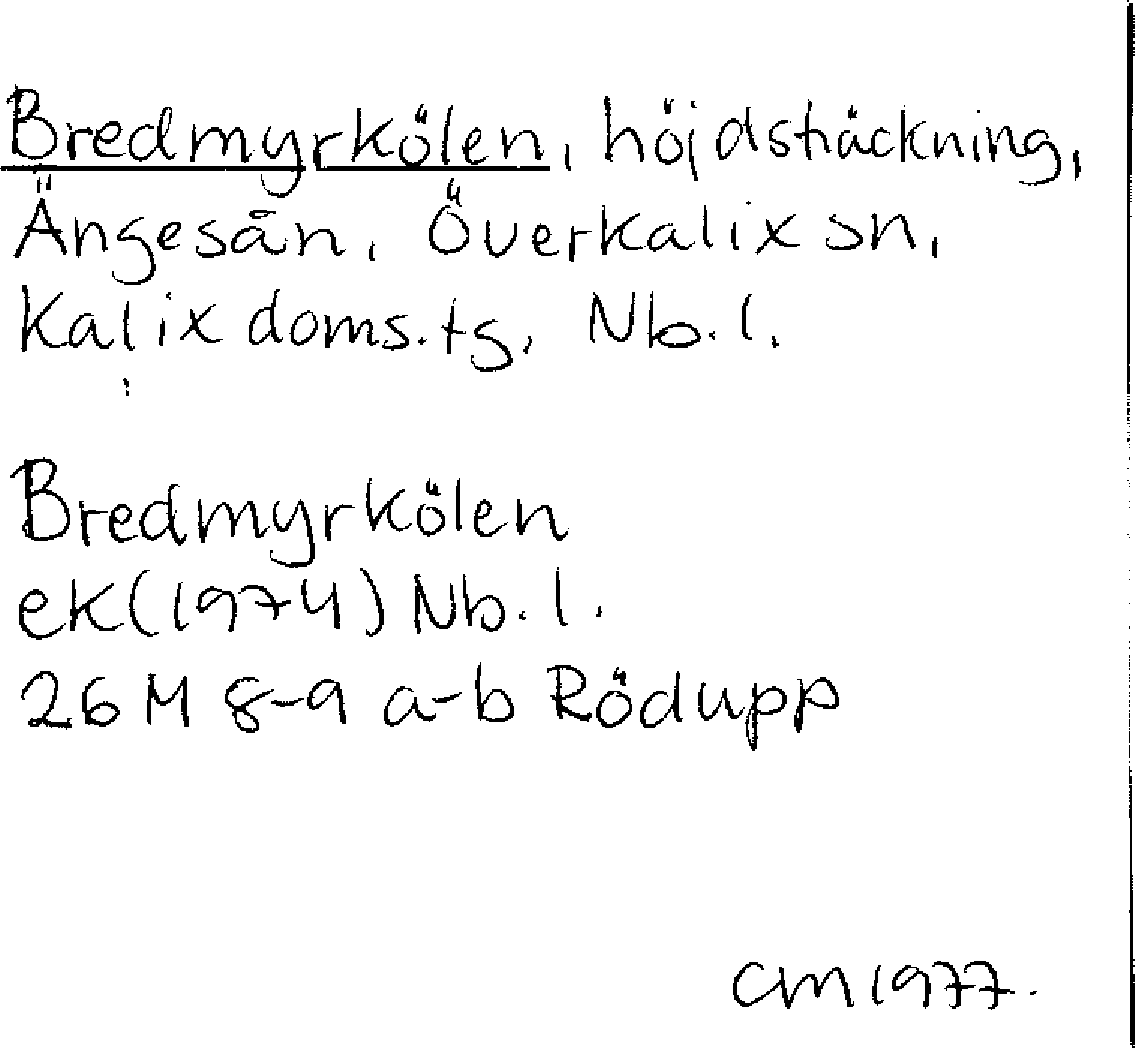 Bredmyrkölen, höjdsträckning,
Ängesån, Överkalix sn,
Kalix doms.tg, Nb.l.
Bredmyrkölen
ek(1974) Nb.l.
26 M 8-9 a-b Rödupp
CM 1977.